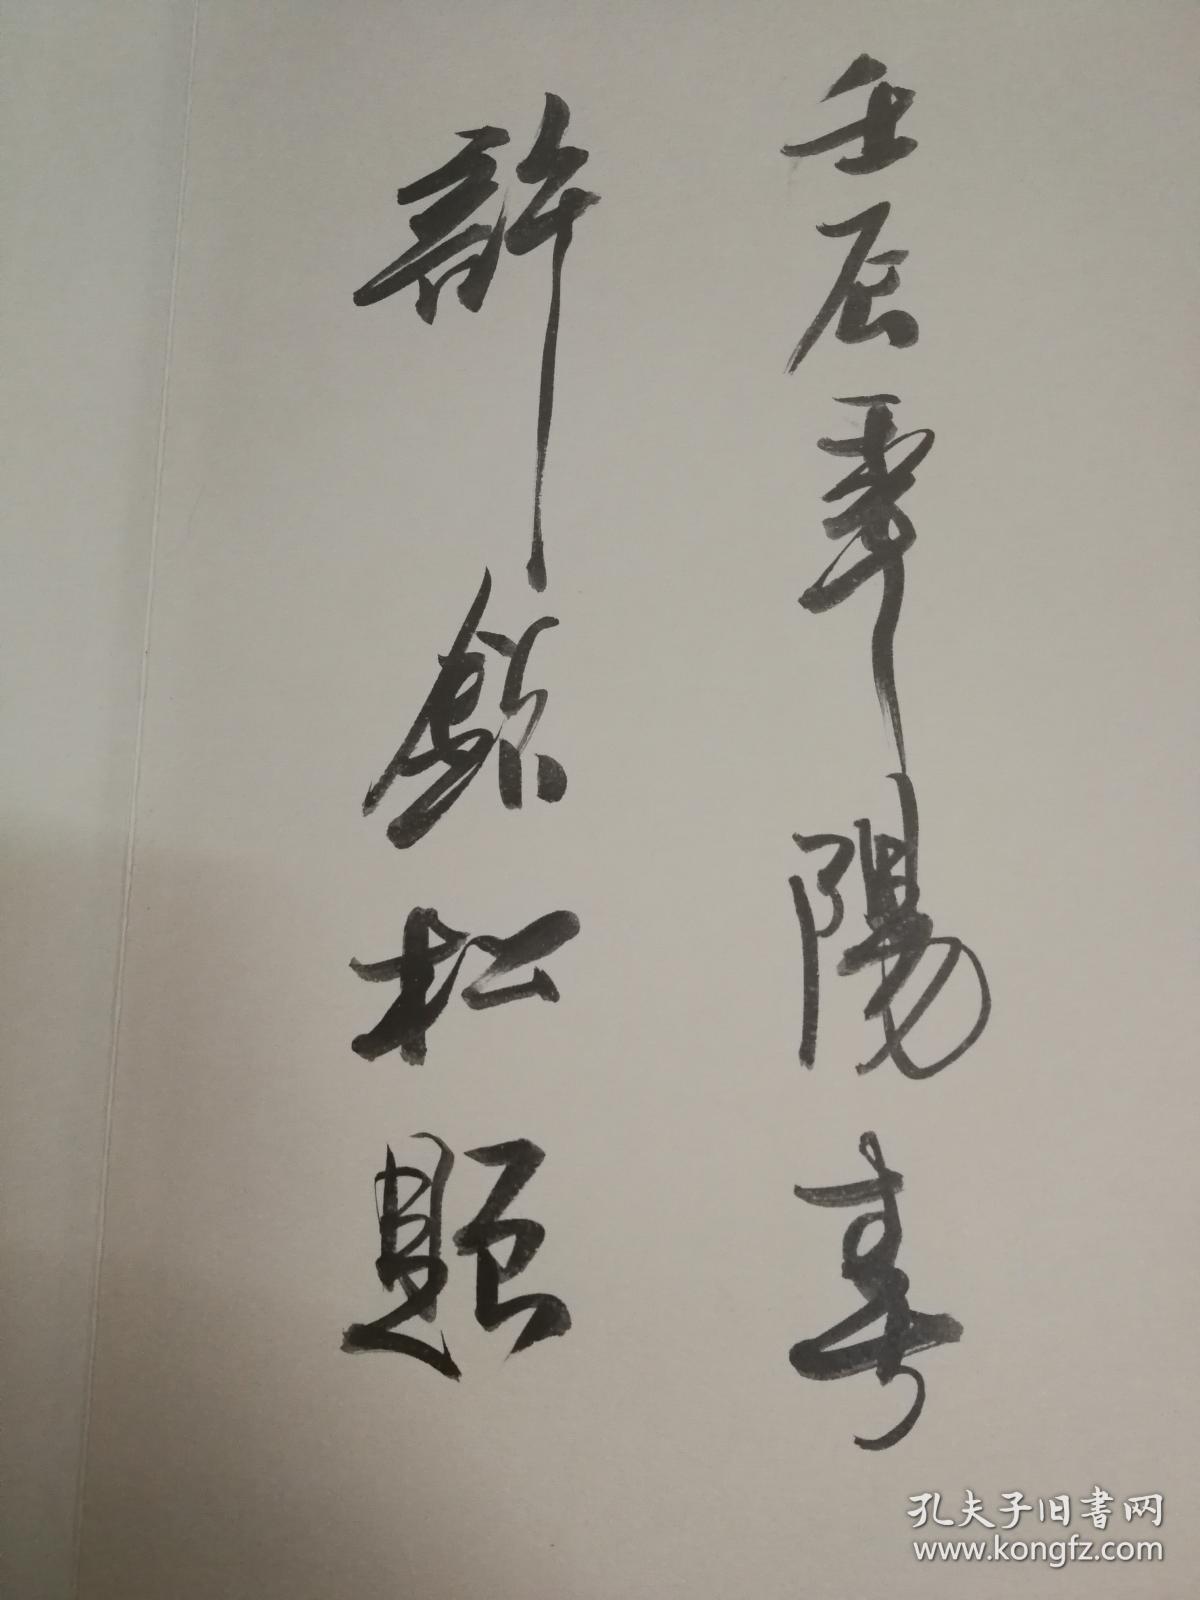 壬辰秊陽春
許欽松題
孔夫子旧书网
www.kongfz.com